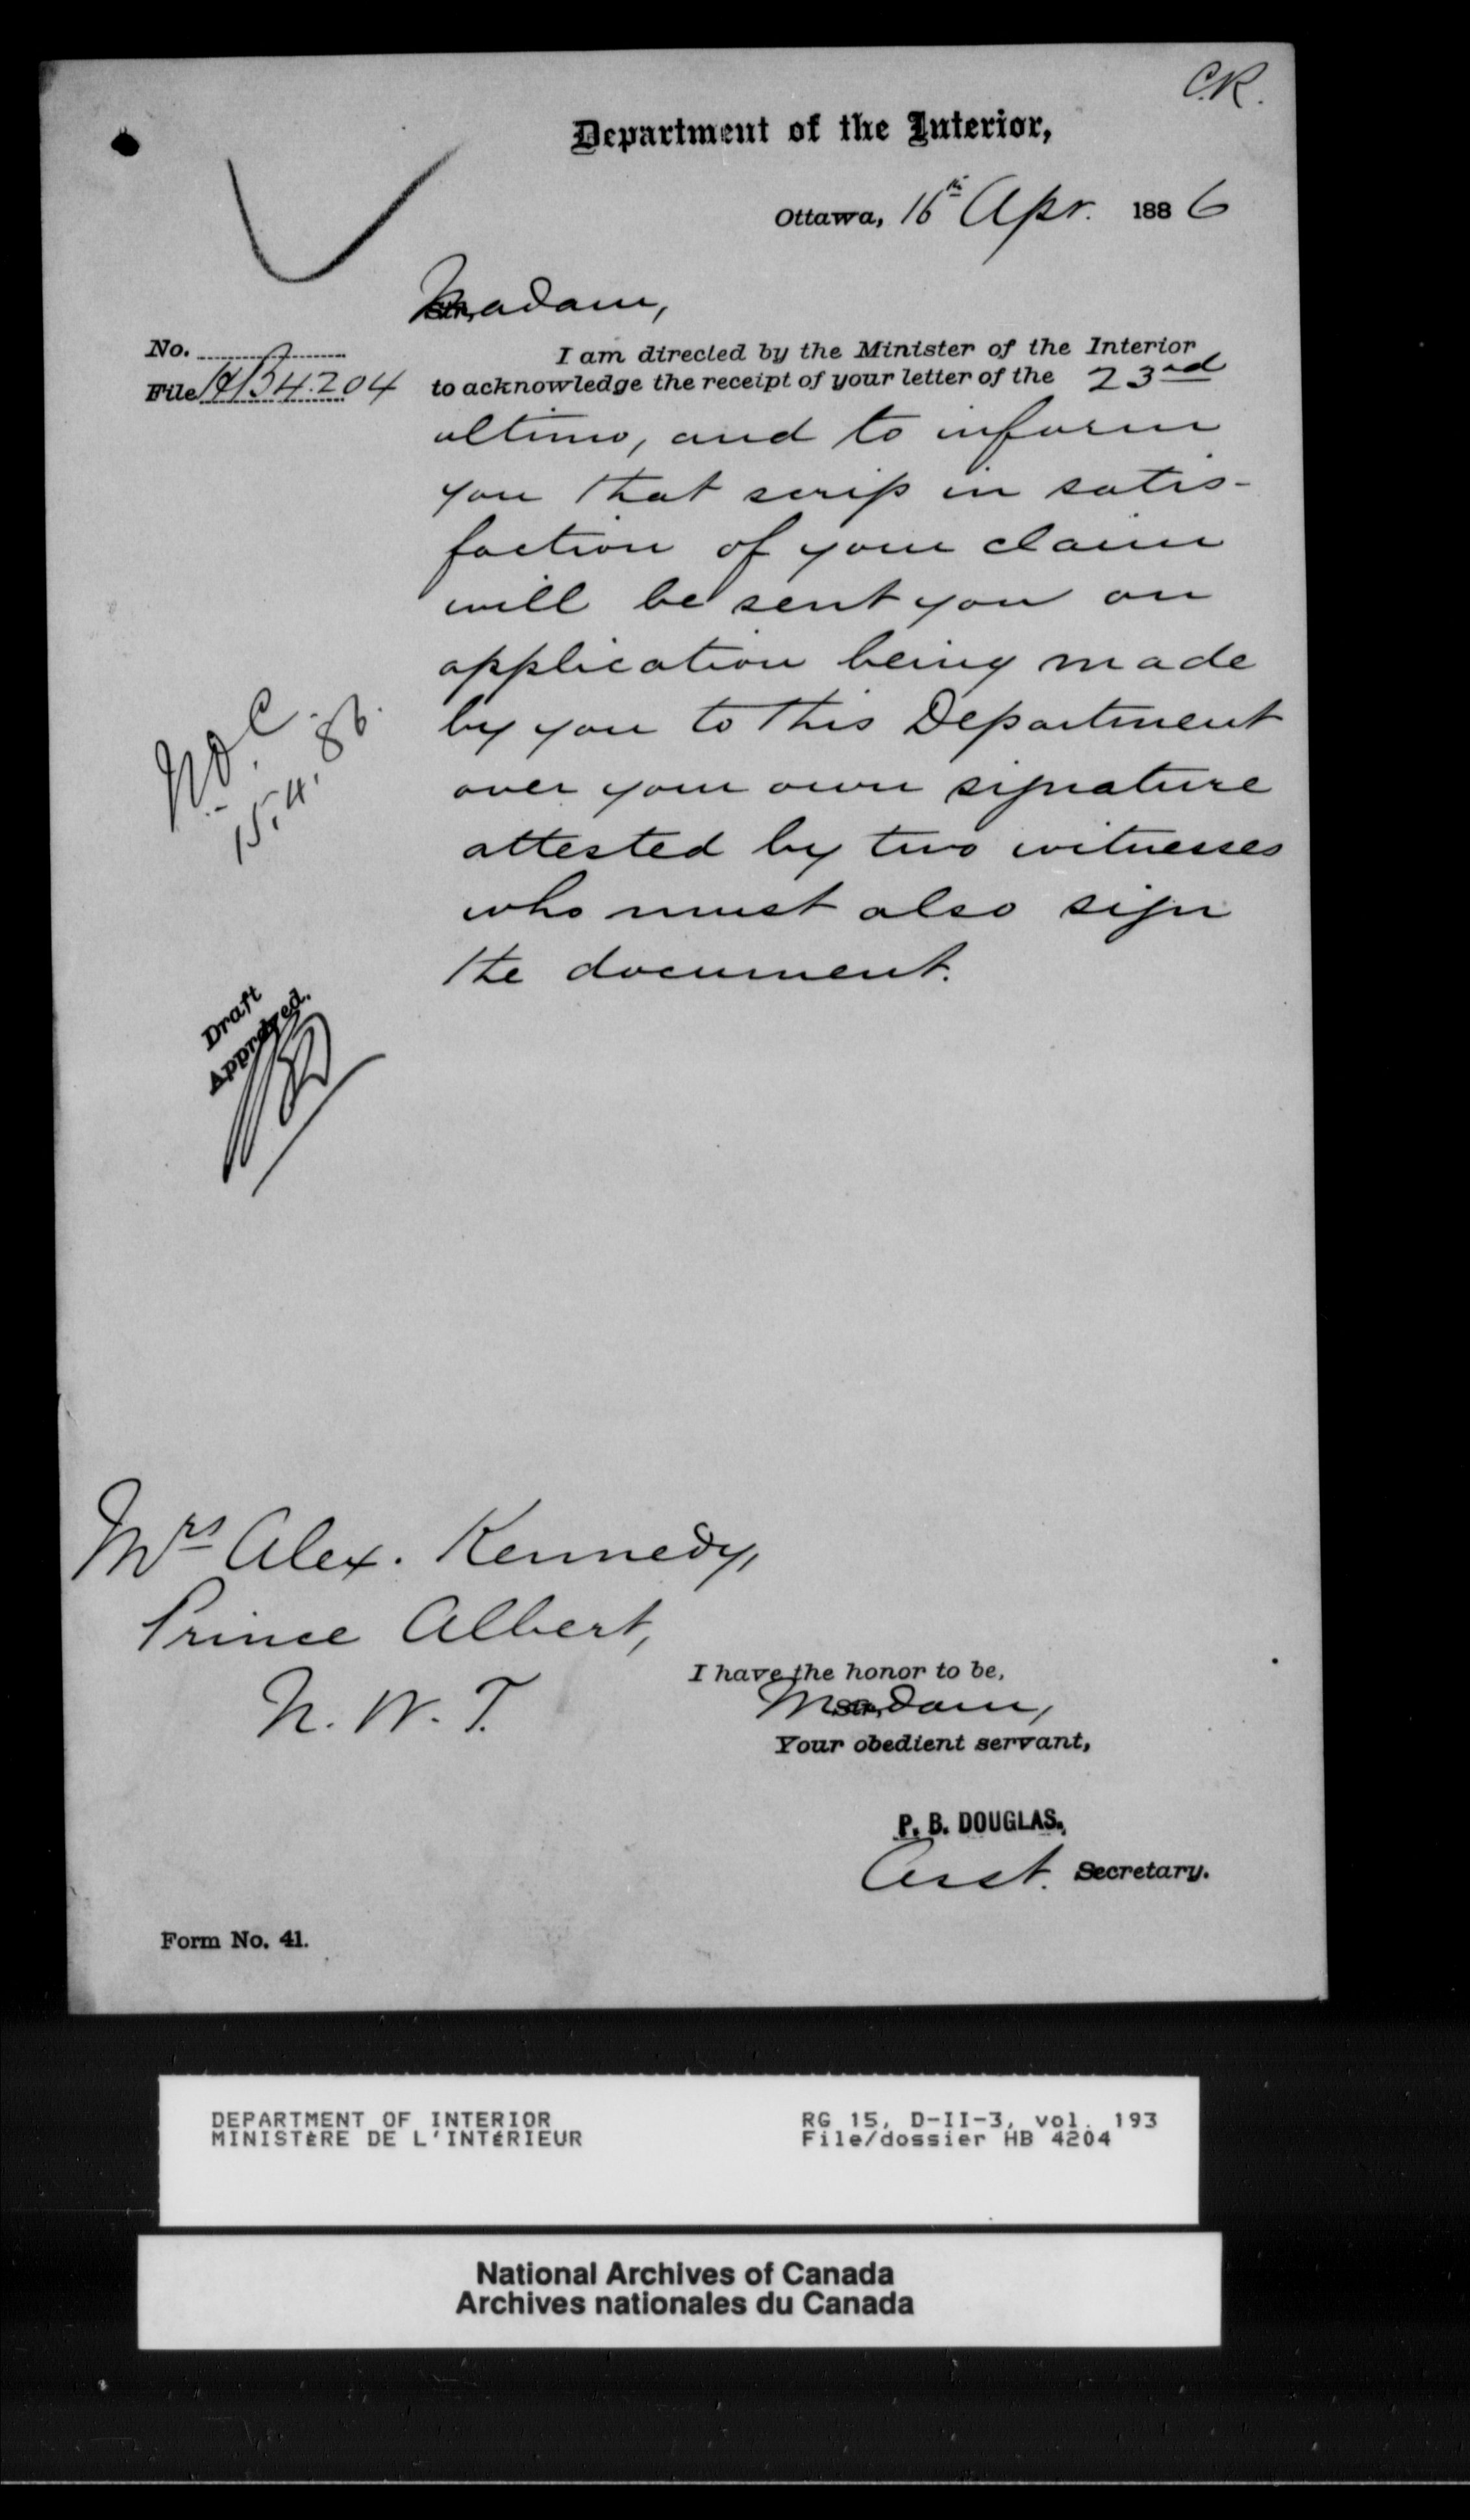 C.R.
Department of the Interior,
Ottawa, 16th Apr. 1886
Madam,
No.
File HB 4204
I am directed by the Minister of the Interior
to acknowledge the receipt of your letter of the 23rd
ultimo, and to inform
you that scrip in satis-
faction of your claim
will be sent you on
application being made
by you to this Department
over your own signature
attested by two witnesses
who must also sign
the document.
15.4.86.
Draft
Approved.
Mrs Alex. Kennedy,
Prince Albert,
N. W. T.
I have the honor to be,
Madam,
Your obedient servant,
P. B. DOUGLAS.,
Asst. Secretary.
Form No. 41.
DEPARTMENT OF INTERIOR
MINISTÈRE DE L'INTÉRIEUR
RG 15, D-II-3, vol. 193
File/dossier HB 4204
National Archives of Canada
Archives nationales du Canada